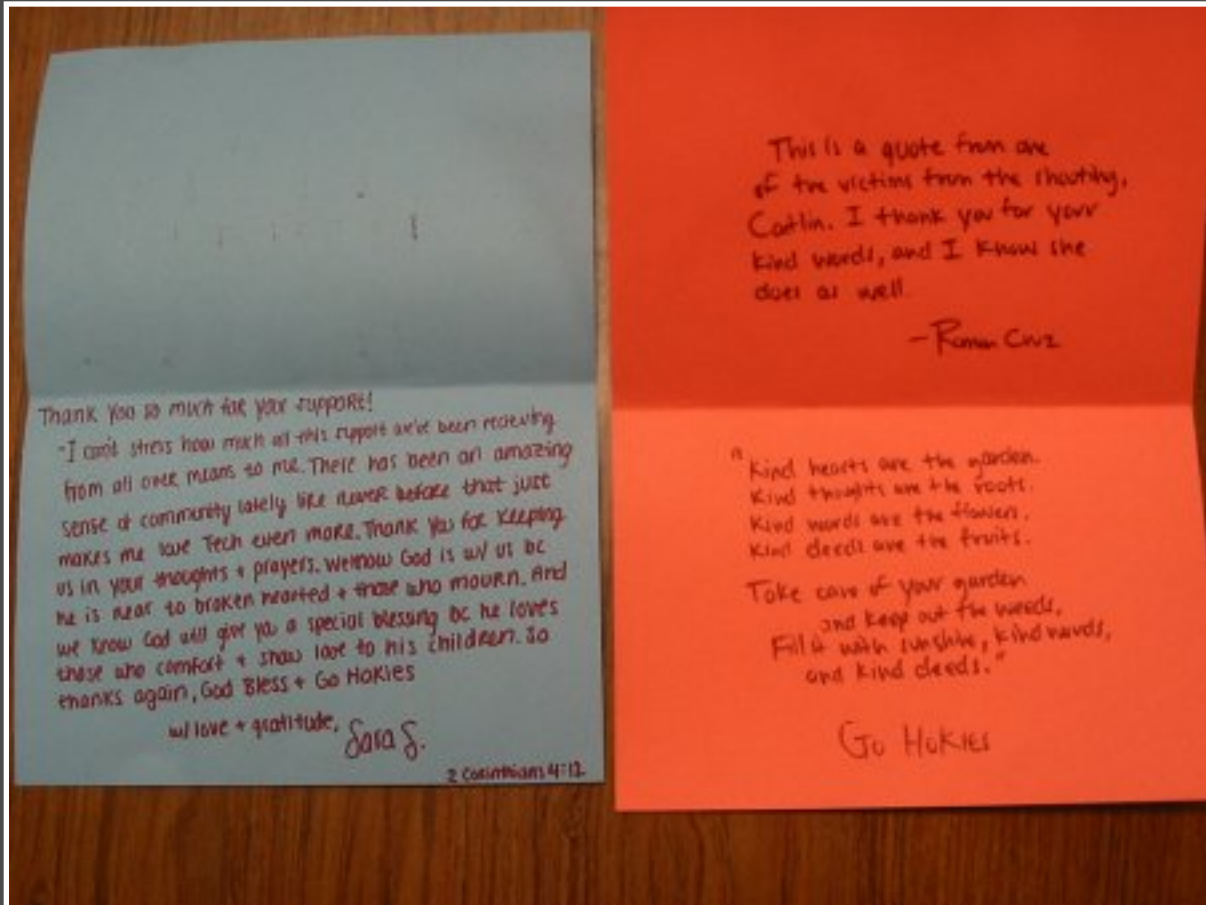 Thank you so much for your support!
-I can't stress how much all this support we've been recieving
from all over means to me. There has been an amazing
sense of community lately like never before that just
makes me love Tech even more. Thank you for keeping
us in your thoughts + prayers. We know God is w/ us bc
he is near to broken hearted + those who mourn. And
we know God will give ya a special blessing bc he loves
those who comfort + show love to his children. So
thanks again, God Bless + Go Hokies
w/ love + gratitude,
Sara S.
2 Corinthians 4:12
This is a quote from one
of the victims from the shooting,
Caitlin. I thank you for your
kind words, and I know she
does as well.
- Cruz
"Kind hearts are the garden.
Kind thoughts are the roots.
Kind words are the flowers.
Kind deeds are the fruits.
Take care of your garden
and keep out the weeds,
Fill it with sunshine, kind words,
and kind deeds."
GO HOKIES